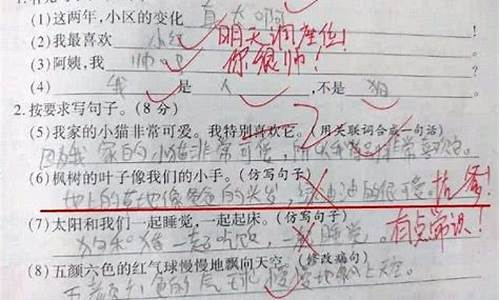 (1)这两年,小区的变化 真大啊
(2)我最喜欢 小红 明天调座位!
(3)阿姨,我 帅吧 你很帅!
(4) 我 是 人 ,不是 狗
2.按要求写句子。(8 分)
(5)我家的小猫非常可爱。我特别喜欢它。(用关联词合成一句话)
因为我家的小猫非常可爱,所以我 非常喜欢它。
(6)枫树的叶子像我们的小手。(仿写句子)
地上的草地像爸爸的头发, 绿油油的很 抗爹!
(7)太阳和我们一起睡觉,一起起床。(仿写句子)
狗和猪一起吃饭,一起睡觉。 有点常识!
(8)五颜六色的红气球慢慢地飘向天空。(修改病句)
五颜六色的气球慢慢地飘上天空。